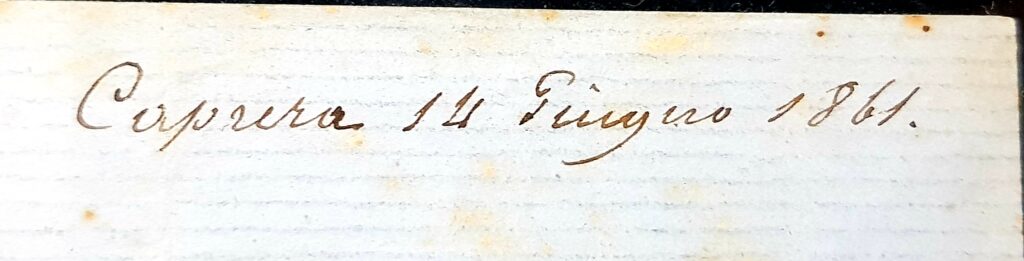 Caprera 14 Giugno 1861.